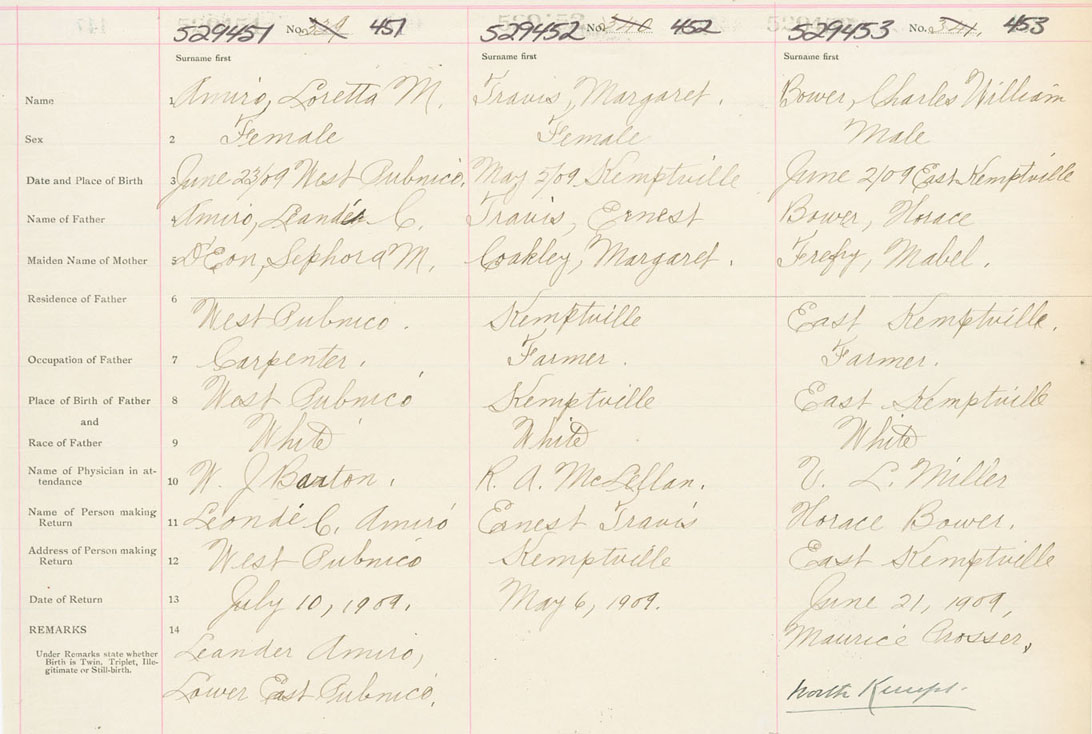 529451 No. 339 451 529452 No. 340 452 529453 No. 341. 453
Surname first Surname first Surname first
Name 1 Amiro, Loretta M. Travis, Margaret. Bower, Charles William
Sex 2 Female Female Male
Date and Place of Birth 3 June 23/09 West Pubnico. May 5/09 Kemptville June 2/09 East Kemptville
Name of Father 4 Amiro, Leander C. Travis, Ernest Bower, Horace
Maiden Name of Mother 5 D'Eon, Sephora M. Coakley, Margaret. Frefry, Mabel.
Residence of Father 6
West Pubnico. Kemptville East Kemptville.
Occupation of Father 7 Carpenter. Farmer. Farmer.
Place of Birth of Father 8 West Pubnico Kemptville East Kemptville
and
Race of Father 9 White White White
Name of Physician in at-
tendance 10 W. J. Barton. R. A. McLellan. L. Miller
Name of Person making
Return 11 Leondé C. Amiro Earnest Travis Horace Bower.
Address of Person making
Return 12 West Pubnico Kemptville East Kemptville
Date of Return 13 July 10, 1909. May 6, 1909. June 21, 1909,
REMARKS 14 Maurice Crosser,
Under Remarks state whether
Birth is Twin, Triplet, Ille-
gitimate or Still-birth.
Leander Amiro,
Lower East Pubnico.
North Kempt.